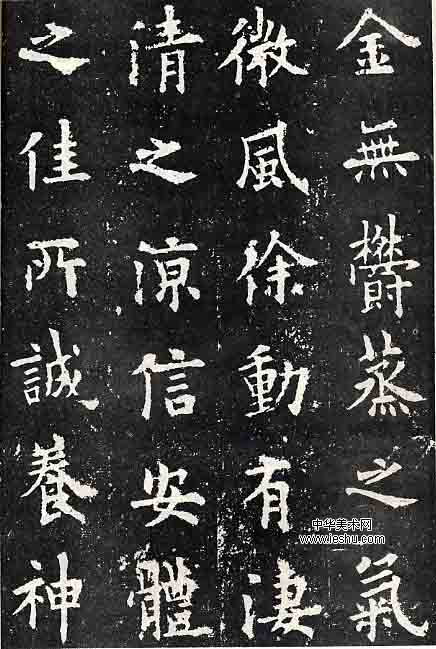 金無欝蒸之氣
微風徐動有淒
清之涼信安體
之佳所誠養神
中华美术网
www.ieshu.com